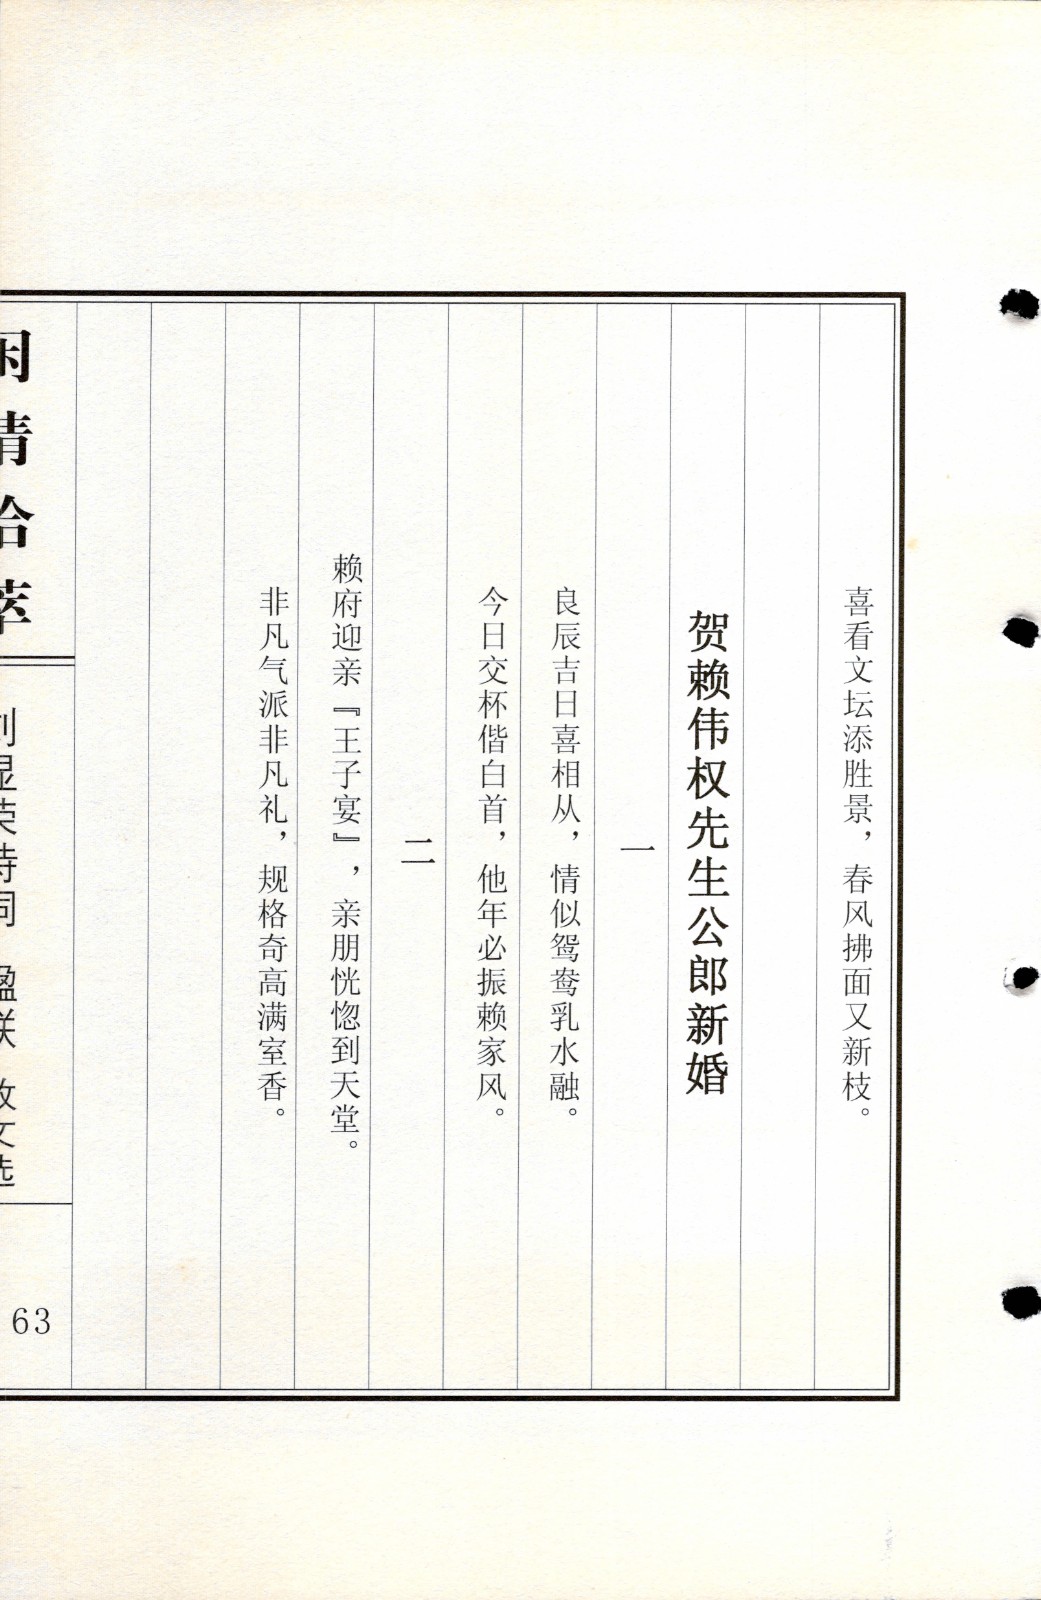 喜看文坛添胜景，春风拂面又新枝。
贺赖伟权先生公郎新婚
一
良辰吉日喜相从，情似鸳鸯乳水融。
今日交杯偕白首，他年必振赖家风。
二
赖府迎亲『王子宴』，亲朋恍惚到天堂。
非凡气派非凡礼，规格奇高满室香。
63